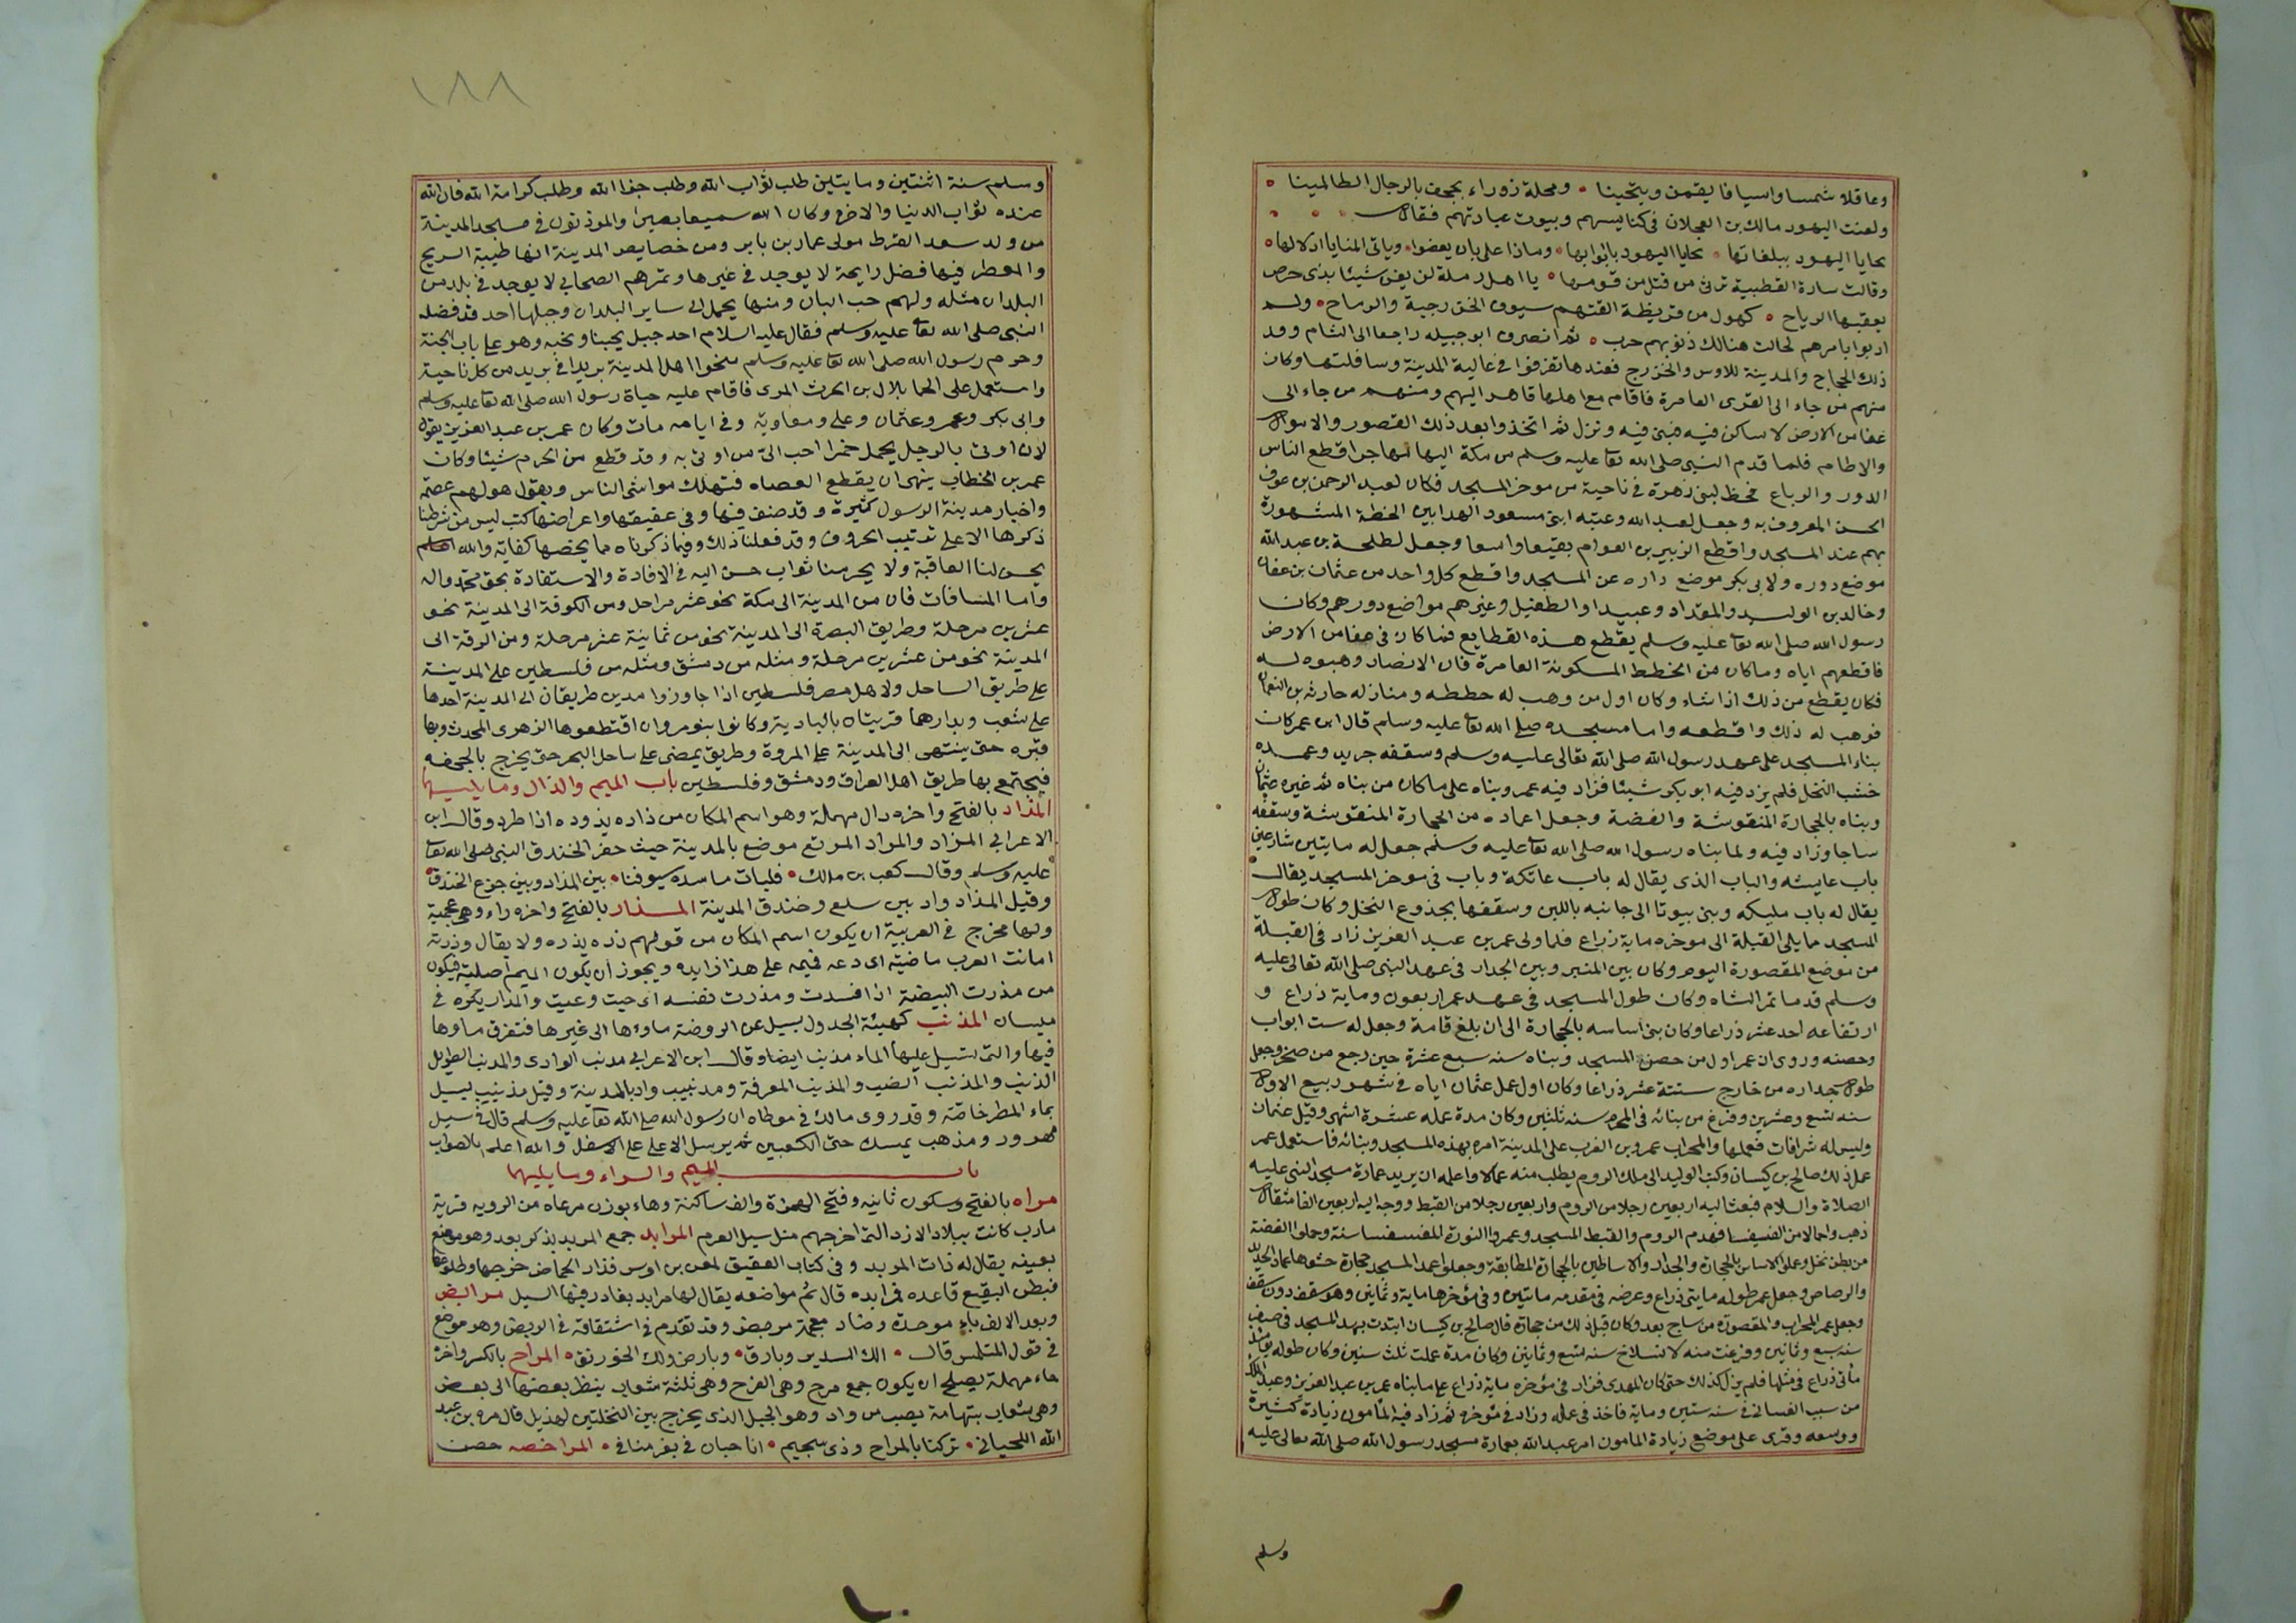 وعاقلا شمسا واسيافا يقمن وينحينا • ومحلة زوراء بجحف بالرجال الظالمينا •
ولعنت اليهود مالك بن العجلان فى كنايسهم وبيوت عبادتهم فقال
تحايا اليهود ببلغاتها • تحايا اليهود بابوابها • وماذا على بان يغضوا • وياتى المنايا اذلالها •
وقالت سارة القطبية ترثى من قتل من قومها • يا اهل رملة لن يغن شيئا بذى حرض
يعقبها الرياح • كهول من قريظة القتهم سيوف الخزرجية والرماح • ولم
اذبوا بامرهم لحالت هنالك ذنوبهم حرب • ثم انصرف ابو جبيله راجعا الى الشام وقد
ذلك الحجاج والمدينة للاوس والخزرج فعندها تفرقوا فى عالية المدينة وسافلتها وكان
منهم من جاء الى القرى العامرة فاقام مع اهلها قاهرا لهم ومنهم من جاء الى
عفا من الارض لا ساكن فيه فبنى فيه ونزل ثم اتخذوا بعد ذلك القصور والاموال
والاطام فلما قدم النبى صلى الله تعا عليه وسلم من مكة اليها مهاجرا قطع الناس
الدور والرباع فخط لبنى زهرة فى ناحية من موخر المسجد فكان لعبد الرحمن بن عوف
الحسن المعروف به وجعل لعبد الله وعتبه ابنى مسعود الهدابين الخطة المشهورة
بهم عند المسجد واقطع الزبير بن العوام بقيعا واسعا وجعل لطلحة بن عبد الله
موضع دوره ولابى بكر موضع داره عن المسجد واقطع كل واحد من عثمان بن عفان
وخالد بن الوليد والمقداد وعبيدا والطفيل وغيرهم مواضع دورهم وكان
رسول الله صلى الله تعا عليه وسلم يقطع هذه القطايع فما كان فى عفا من الارض
فاقطعهم اياه وما كان من الخطط المسكونة العامرة فان الانصار وهبوه له
فكان يقطع من ذلك اذا شاء وكان اول من وهب له خططه ومنازله حارثه بن النعمان
فوهب له ذلك واقطعه واما مسجده صلى الله تعا عليه وسلم قال ابن عمر كان
بناء المسجد على عهد رسول الله صلى الله تعالى عليه وسلم وسقفه جريد وعمده
خشب النخل فلم يزد فيه ابو بكر شيئا فزاد فيه عمر وبناه على ما كان من بناه ثم غيره عثمان
وبناه بالحجارة المنقوشة والفضة وجعل اعماده من الحجارة المنقوشة وسقفه
ساجا وزاد فيه ولما بناه رسول الله صلى الله تعا عليه وسلم جعل له مايتين شارعين
باب عايشه والباب الذى يقال له باب عاتكة وباب فى موخر المسجد يقال
يقال له باب مليكه وبنى بيوتا الى جانبه باللبن وسقفها بجذوع النخل وكان طول
المسجد مما يلى القبلة الى موخره ماية ذراع فلما ولى عمر بن عبد العزيز زاد فى القبلة
من موضع المقصورة اليوم وكان بين المنبر وبين الجدار فى عهد النبى صلى الله تعالى عليه
وسلم قدما تمر الشاه وكان طول المسجد فى عهد عمر اربعون وماية ذراع و
ارتفاعه احد عشر ذراعا وكان بنى اساسه بالحجارة الى ان بلغ قامة وجعل له ست ابواب
وحصنه وروى ان عمر اول من حصن المسجد وبناه سنه سبع عشرة حين رجع من صخر وجعل
طول جداره من خارج ستة عشر ذراعا وكان اول عمل عثمان اياه فى شهر ربيع الاول
سنه تسع وعشرين وفرغ من بنائه فى المحرم سنه ثلثين وكان مدة عمله عشرة اشهر وقتل عثمان
وليس له شرافات فعملها والمحراب عمر بن الغرب على المدينة امره بهذه المسجد وبنائه فاستعمل عمر
على ذلك صالح بن كيسان وكتب الوليد الى ملك الروم يطلب منه عمالا واعلمه ان يريد عمارة مسجد النبى عليه
الصلاة والسلام فبعث اليه اربعين رجلا من الروم واربعين رجلا من القبط ووجه اليه اربعين الفا مثقال
ذهب واحمالا من الفسيفسا فهدم الروم والقبط المسجد وعمروا النورة المفسفسا سنة وحملوا الفضة
من بطن نخل وعملوا الاساس بالحجارة والجدار والاساطين بالحجارة المطابقة وجعلوا عمد المسجد حجارة حشوها عماد الحديد
والرصاص وجعل عمر طوله مايتى ذراع وعرضه فى مقدمه مايتين وفى مؤخرها ماية وثمانين وهو سقف دون سقف
وجعل عمر المحراب والمقصورة من ساج بعد وكان قبل ذلك من حجارة قال صالح بن كيسان ابتدت بهد المسجد فى صفر
سنه سبع وثمانين وفرغت منه لانسلاخ سنه تسع وثمانين وكان مدة عملت ثلث سنين وكان طوله يومئذ
مأتى ذراع فى مثلها فلم يزل كذلك حتى كان المهدى فزاد فى مؤخره ماية ذراع على ما بناه عمر بن عبد العزيز وعبد الملك
من سبب الغسانى فى سنه ستين وماية فاخذ فى عمله وزاد فى مؤخره ثم زاد فيه المأمون زيادة كثيرة
ووسعه وقرى على موضع زيادة المامون امر عبد الله بعمارة مسجد رسول الله صلى الله تعالى عليه
وسلم
١٨٨
وسلم سنة اثنتين ومايتين طلب ثواب الله وطلب جزا الله وطلب كرامة الله فان الله
عنده ثواب الدنيا والاخرة وكان الله سميعا بصيرا والموذنون فى مسجد المدينة
من ولد سعد القرظ مولى عمار بن ياسر ومن خصايص المدينة انها طيبة الريح
والعطر فيها فضل رايحة لا يوجد فى غيرها وتمرهم الصحابي لا يوجد فى بلد من
البلدان مثله ولهم حب البان ومنها يحمل الى ساير البلدان وجبلها احد قد فضله
النبى صلى الله تعا عليه وسلم فقال عليه السلام احد جبل يحبنا ونحبه وهو على باب الجنة
وحرم رسول الله صلى الله تعا عليه وسلم نخوا اهل المدينة بريدا فى بريد من كل ناحية
واستعمل على الحما بلال بن الحرث المزى فاقام عليه حياة رسول الله صلى الله تعا عليه وسلم
وابى بكر وعمر وعثمان وعلى ومعاوية وفى ايامه مات وكان عمر بن عبد العزيز يقول
لان اوتى بالرجل يحمل خمرا احب الى من اوتى به وقد قطع من الحرم شيئا وكان
عمر بن الخطاب ينهى ان يقطع العضاه فتهلك مواشى الناس ويقول هو لهم عصمة
واخبار مدينة الرسول كثيرة وقد صنف فيها وفى عقيقها واعراضها كتب ليس من شرطنا
ذكرها الا على ترتيب الحروف وقد فعلنا ذلك وفيما ذكرناه مما يخصها كفاية والله اعلم
يحسن لنا العاقبة ولا يحرمنا ثواب حسن اليه فى الافادة والاستفادة بحق محمد واله
واما المسافات فان من المدينة الى مكة نحو عشر مراحل ومن الكوفة الى المدينة نحو
عشرين مرحلة وطريق البصرة الى المدينة نحو من ثمانية عشر مرحلة ومن الرقة الى
المدينة نحو من عشرين مرحلة ومثله من دمشق ومثله من فلسطين على المدينة
على طريق الساحل ولاهل مصر فلسطين اذا جاوزوا مدين طريقان الى المدينة احدها
على شعب وبدا وهما قريتان بالبادية وكانوا بنو مروان اقتطعوها الزهرى المحدث وبها
قبره حتى ينتهى الى المدينة على المروة وطريق يمضى على ساحل البحر حتى يخرج بالجحفه
فيجتمع بها طريق اهل العراق ودمشق وفلسطين باب الميم والذال وما يليهما
المذاد بالفتح واخره دال مهملة وهو اسم المكان من ذاده يذوده اذا طرد وقال ابن
الاعرابي المزاد والمراد المرتع موضع بالمدينة حيث حفر الخندق النبى صلى الله تعا
عليه وسلم وقال كعب بن مالك • فليات ماسدة سيوفنا • بين المذاد وبين جزع الخندق •
وقيل المذاد واد بين سلع وخندق المدينة المذار بالفتح واخره راء وهى عجمية
ولها مخرج فى العربية ان يكون اسم المكان من قولهم ذره يذره ولا يقال وذرته
امانت العرب ماضيه اى دعه فيمه على هذا زايده ويجوز ان يكون الميم اصلية فيكون
من مذرت البيضة اذا فسدت ومذرت نفسه اى خبثت وعيت والمدار بكره فى
ميسان المذنب كهيئة الجدول يسيل عن الروضة ماؤها الى غيرها فتفرق ماوها
فيها والتى تسيل عليها الماء مذنب ايضا وقال ابن الاعرابي مذنب الوادى والمذنب الطويل
الذنب والمذنب الضب والمذنب المعرفة ومذنبيب واد بالمدينة وقيل مذينيب يسيل
بماء المطر خاصة وقد روى مالك فى موطاه ان رسول الله صلى الله تعا عليه وسلم قال فى سيل
مهزور ومذهب يمسك حتى الكعبين ثم يرسل الاعلى على الاسفل والله اعلم بالصواب
باب الميم والراء وما يليهما
مراه بالفتح وسكون ثانيه وفتح الهمزة والف ساكنة وهاء بوزن مرعاه من الرويه قرية
مارب كانت ببلاد الازد التى اخرجهم منها سيل العرم المرابد جمع المربد يذكر بعد وهو موضع
بعينه يقال له ذات المربد وفى كتاب العقيق لمعن بن اوس فذار الحماض خرجها وطلوعها
فبطن البقيع قاعده فمرابده قال ثم مواضعه يقال لها مرابد يغادر فيها السيل مرابض
وبعد الالف باء موحدة وضاد معجمة مربض وقد تقدم فى اشتقاقه فى الربض وهو موضع
فى قول المتلمس قال • الك السدير وبارق • وبارض ولك الخورنق • المراح بالكسر واخره
حاء مهملة يصلح ان يكون جمع مرح وهى الفرح وهى ثلثة شعاب ينظر بعضها الى بعض
وهى شعاب بتهامة يصب من واد وهو الجبل الذى يخرج بين النخلتين لهذيل قال مره بن عبد
الله اللحيانى • تركنا بالمراح وذى سجيم • انا حيان فى نفر منافى • المراخصه حصن